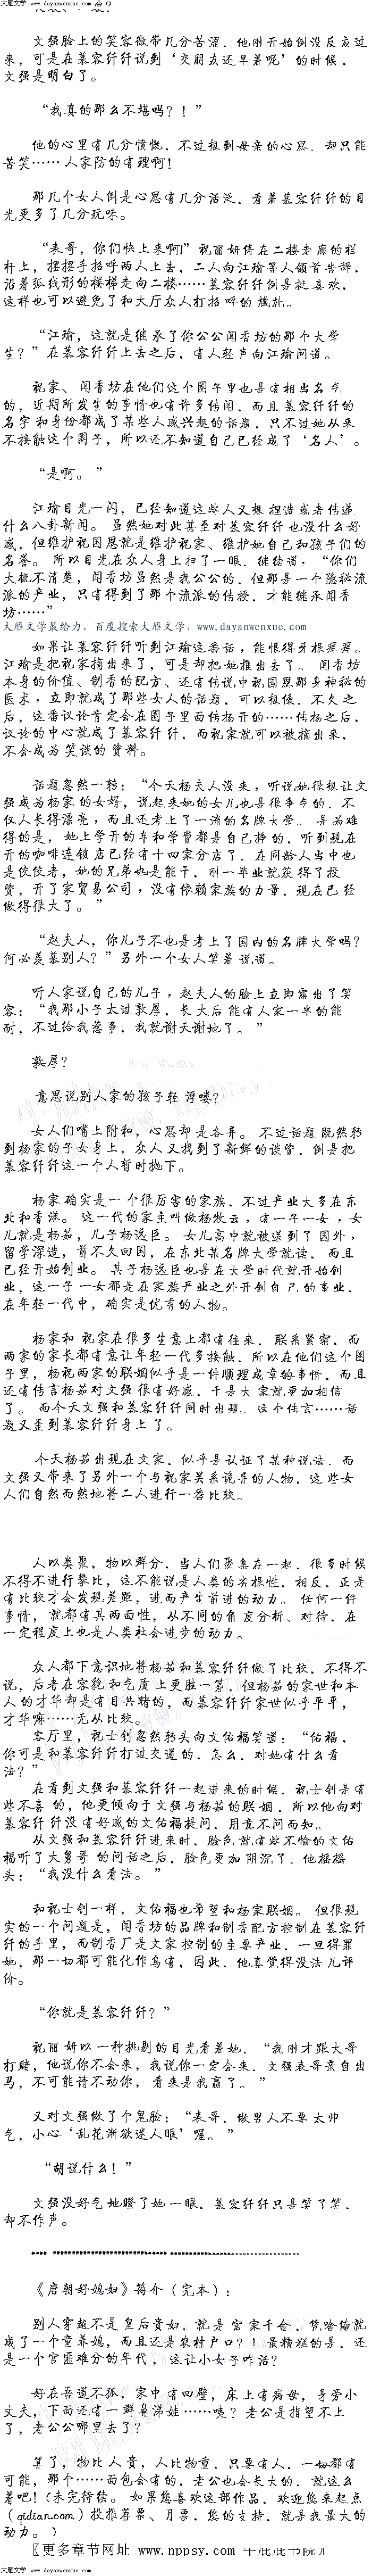 大雁文学 www.dayanwenxue.com
文强脸上的笑容微带几分苦涩，他刚开始倒没反应过
来，可是在慕容纤纤说到‘交朋友还早着呢’的时候，
文强是明白了。
“我真的那么不堪吗？！”
他的心里有几分愤慨，不过想到母亲的心思，却只能
苦笑……人家防的有理啊！
那几个女人倒是心思有几分活泛，看着慕容纤纤的目
光更多了几分玩味。
“表哥，你们快上来啊！”祝丽妍倚在二楼走廊的栏
杆上，摆摆手招呼两人上去，二人向江瑜等人颔首告辞，
沿着弧线形的楼梯走向二楼……慕容纤纤倒是挺喜欢，
这样也可以避免了和大厅众人打招呼的尴尬。
“江瑜，这就是继承了你公公闻香坊的那个大学
生？”在慕容纤纤上去之后，有人轻声向江瑜问道。
祝家、闻香坊在他们这个圈子里也是有相当名气
的，近期所发生的事情也有许多传闻，而且慕容纤纤的
名字和身份都成了某些人感兴趣的话题，只不过她从来
不接触这个圈子，所以还不知道自己已经成了‘名人’。
“是啊。”
江瑜目光一闪，已经知道这些人又想捏造或者传递
什么八卦新闻。虽然她对此甚至对慕容纤纤也没什么好
感，但维护祝固恩就是维护祝家、维护她自己和孩子们的
名誉。所以目光在众人身上扫了一眼，继续道：“你们
大概不清楚，闻香坊虽然是我公公的，但那是一个隐秘流
派的产业，只有得到了那个流派的传授，才能继承闻香
坊……”
大雁文学最给力，百度搜索大雁文学，www.dayanwenxue.com
如果让慕容纤纤听到江瑜这番话，能恨得牙根痒痒。
江瑜是把祝家摘出来了，可是却把她推出去了。闻香坊
本身的价值、制香的配方、还有传说中祝固恩那身神秘的
医术，立即就成了那些女人的话题，可以想像，不久之
后，这番议论肯定会在圈子里面传扬开的……传扬之后，
议论的中心就成了慕容纤纤，而祝家就可以被摘出来，
不会成为笑谈的资料。
话题忽然一转：“今天杨夫人没来，听说她很想让文
强成为杨家的女婿，说起来她的女儿也是很争气的，不
仅人长得漂亮，而且还考上了一流的名牌大学。最为难
得的是，她上学开的车和学费都是自己挣的，听到现在
开的咖啡连锁店已经有十四家分店了，在同龄人当中也
是佼佼者，她的兄弟也是能干，刚一毕业就获得了投
资，开了家贸易公司，没有依赖家族的力量，现在已经
做得很大了。”
“赵夫人，你儿子不也是考上了国内的名牌大学吗？
何必羡慕别人？”另外一个女人笑着说道。
听人家说自己的儿子，赵夫人的脸上立即露出了笑
容：“我那小子太过敦厚，长大后能有人家一半的能
耐，不过给我落事，我就谢天谢地了。”
敦厚？
意思说别人家的孩子轻浮喽？
女人们嘴上附和，心思却是各异。不过话题既然转
到杨家的子女身上，众人又找到了新鲜的谈管，倒是把
慕容纤纤这一个人暂时抛下。
杨家确实是一个很厉害的家族，不过产业大多在东
北和香港。这一代的家主叫做杨牧云，有一子一女，女
儿就是杨茹，儿子杨远臣。女儿高中就被送到了国外，
留学深造，首不久回国，在东北某名牌大学就读，而且
已经开始创业。其子杨远臣也是在大学时代就开始创
业，这一子一女都是在家族产业之外开创自己的事业，
在年轻一代中，确实是优秀的人物。
杨家和祝家在很多生意上都有往来，联系紧密，而
两家的家长都有意让年轻一代多接触，所以在他们这个圈
子里，杨祝两家的联姻似乎是一件顺理成章的事情，而且
还有传言杨茹对文强很有好感，于是大家就更加相信
了。而今天文强和慕容纤纤同时出现，这个传言……话
题又歪到慕容纤纤身上了。
今天杨茹出现在文家，似乎是认证了某种说法，而
文强又带来了另外一个与祝家关系诡异的人物，这些女
人们自然而然地将二人进行一番比较。
人以类聚，物以群分，当人们聚集在一起，很多时候
不得不进行攀比，这不能说是人类的劣根性，相反，正是
有比较才会发现差距，进而产生前进的动力。任何一件
事情，就都有其两面性，从不同的角度分析、对待，在
一定程度上也是人类社会进步的动力。
众人都下意识地将杨茹和慕容纤纤做了比较，不得不
说，后者在容貌和气质上更胜一筹，但杨茹的家世和本
人的才华却是有目共睹的，而慕容纤纤家世似乎平平，
才华嘛……无从比较。
客厅里，祝士创忽然转头向文佑福笑道：“佑福，
你可是和慕容纤纤打过交道的，怎么，对她有什么看
法？”
在看到文强和慕容纤纤一起进来的时候，祝士创是有
些不喜的，他更倾向于文强与杨茹的联姻，所以他向对
慕容纤纤没有好感的文佑福提问，用意不问而知。
从文强和慕容纤纤进来时，脸色就有些不愉的文佑
福听了大舅哥的问话之后，脸色更加阴沉了，他摇摇
头：“我没什么看法。”
和祝士创一样，文佑福也希望和杨家联姻。但很现
实的一个问题是，闻香坊的品牌和制香配方控制在慕容纤
纤的手里，而制香厂是文家控制的主要产业，一旦得罪
她，那一切都可能化作乌有，因此，他真觉得没法儿评
价。
“你就是慕容纤纤？”
祝丽妍以一种挑剔的目光看着她，“我刚才跟大哥
打赌，他说你不会来，我说你一定会来，文强表哥亲自出
马，不可能请不动你，看来是我赢了。”
又对文强做了个鬼脸：“表哥，做男人不要太帅
气，小心‘乱花渐欲迷人眼’喔。”
“胡说什么！”
文强没好气地瞪了她一眼，慕容纤纤只是笑了笑，
却不作声。
《唐朝好媳妇》简介（完本）：
别人穿越不是皇后贵妃，就是富家千金，凭啥俺就
成了一个童养媳，而且还是农村户口？！最糟糕的是，还
是一个官匪难分的年代，这让小女子咋活？
好在吾道不孤，家中有四壁，床上有病母，身旁小
丈夫，下面还有一群鼻涕娃……咦？老公是指望不上
了，老公公哪里去了？
算了，物比人贵，人比物重，只要有人，一切都有
可能，那个……面包会有的，老公也会长大的，就这么
着吧！（未完待续。如果您喜欢这部作品，欢迎您来起点
（qidian.com）投推荐票、月票，您的支持，就是我最大的
动力。）
〖更多章节网址 www.nppsy.com 牛屁屁书院〗
大雁文学 www.dayanwenxue.com